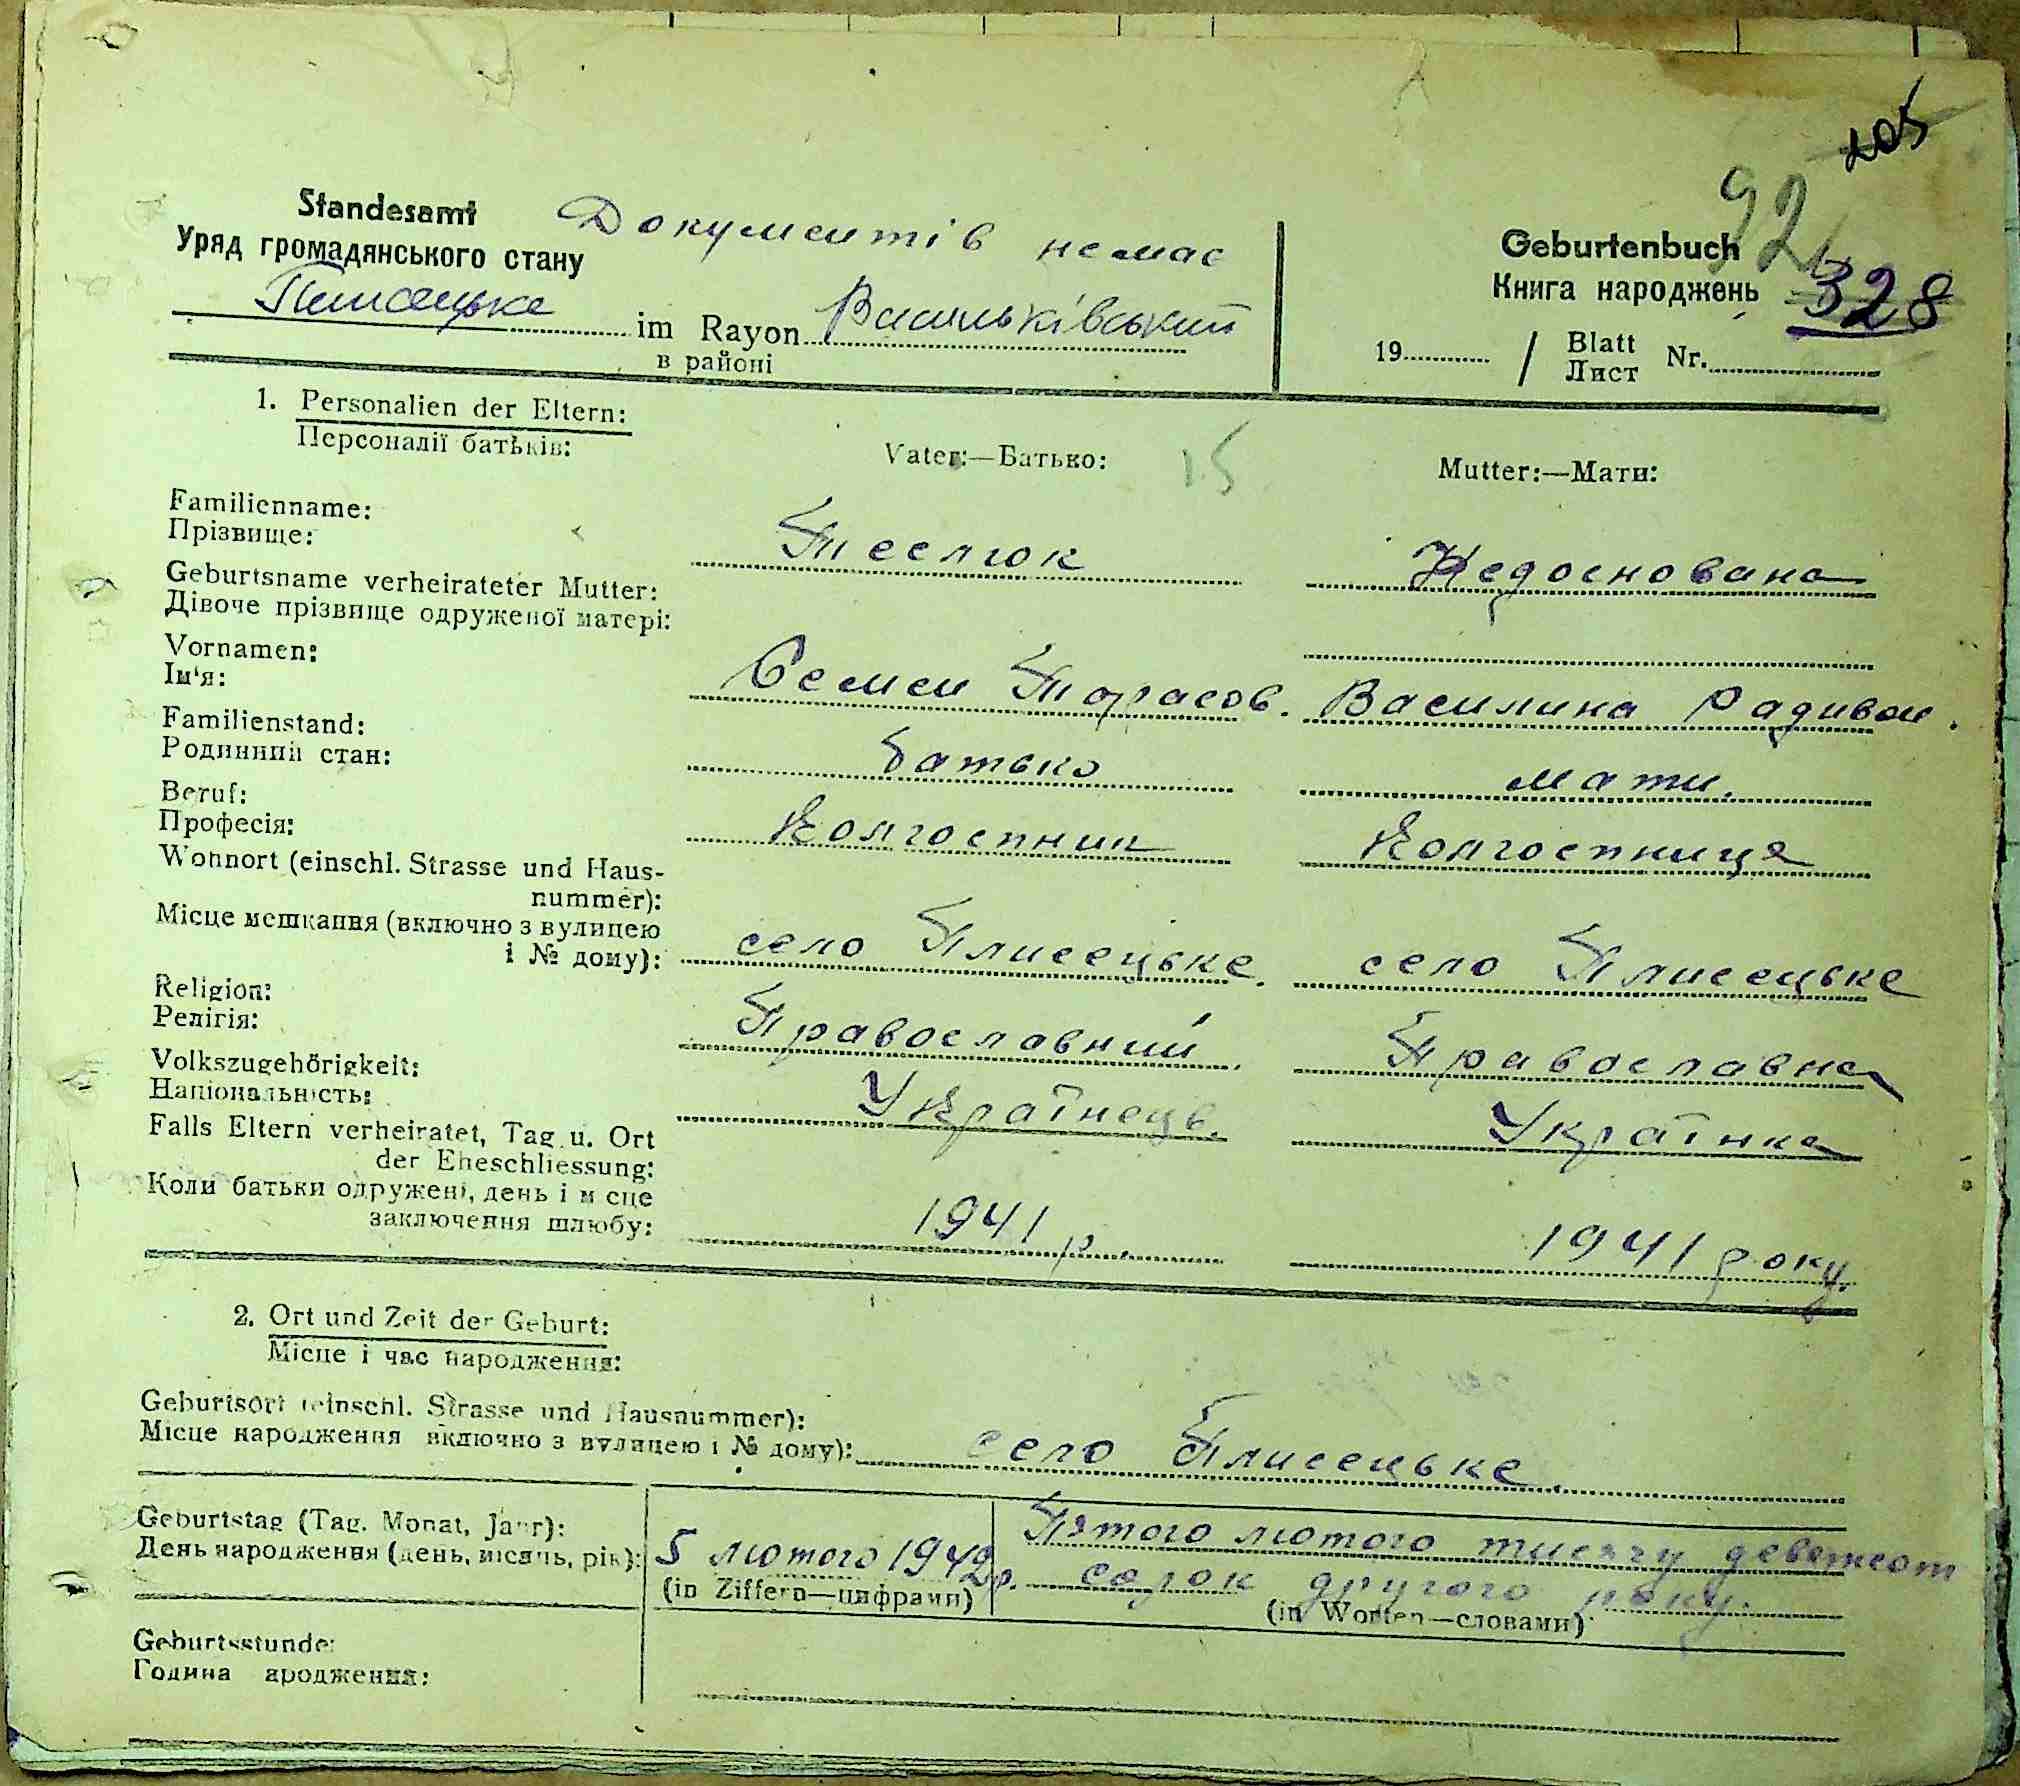 205
92
328
Standesamt Документів немає
Уряд громадянського стану
im Rayon Васильківський
в районі
Geburtenbuch
Книга народжень
19 / Blatt Nr.
Лист
1. Personalien der Eltern:
Персоналії батьків:
Vater:—Батько: 15 Mutter:—Мати:
Familienname:
Прізвище: Теслюк Недоснована
Geburtsname verheirateter Mutter:
Дівоче прізвище одруженої матері:
Vornamen:
Ім'я: Семен Тарасов. Василина Радивон.
Familienstand:
Родинний стан: батько мати.
Beruf:
Професія: Колгоспник Колгоспниця
Wohnort (einschl. Strasse und Haus-
nummer):
Місце мешкання (включно з вулицею
і № дому): село Плисецьке. село Плисецьке
Religion:
Релігія: Православний. Православна
Volkszugehörigkeit:
Національність: Українець. Українка
Falls Eltern verheiratet, Tag u. Ort
der Eheschliessung:
Коли батьки одружені, день і м сце
заключення шлюбу: 1941 р. 1941 року.
2. Ort und Zeit der Geburt:
Місце і час народження:
Geburtsort (einschl. Strasse und Hausnummer):
Місце народження включно з вулицею і № дому): село Плисецьке.
Geburtstag (Tag. Monat, Jahr):
День народження (день, місяць, рік): 5 лютого 1942 р.
(in Ziffern—цифрами)
Пятого лютого тисячу девятсот
сорок другого року.
(in Worten—словами)
Geburtsstunde:
Година ародження: